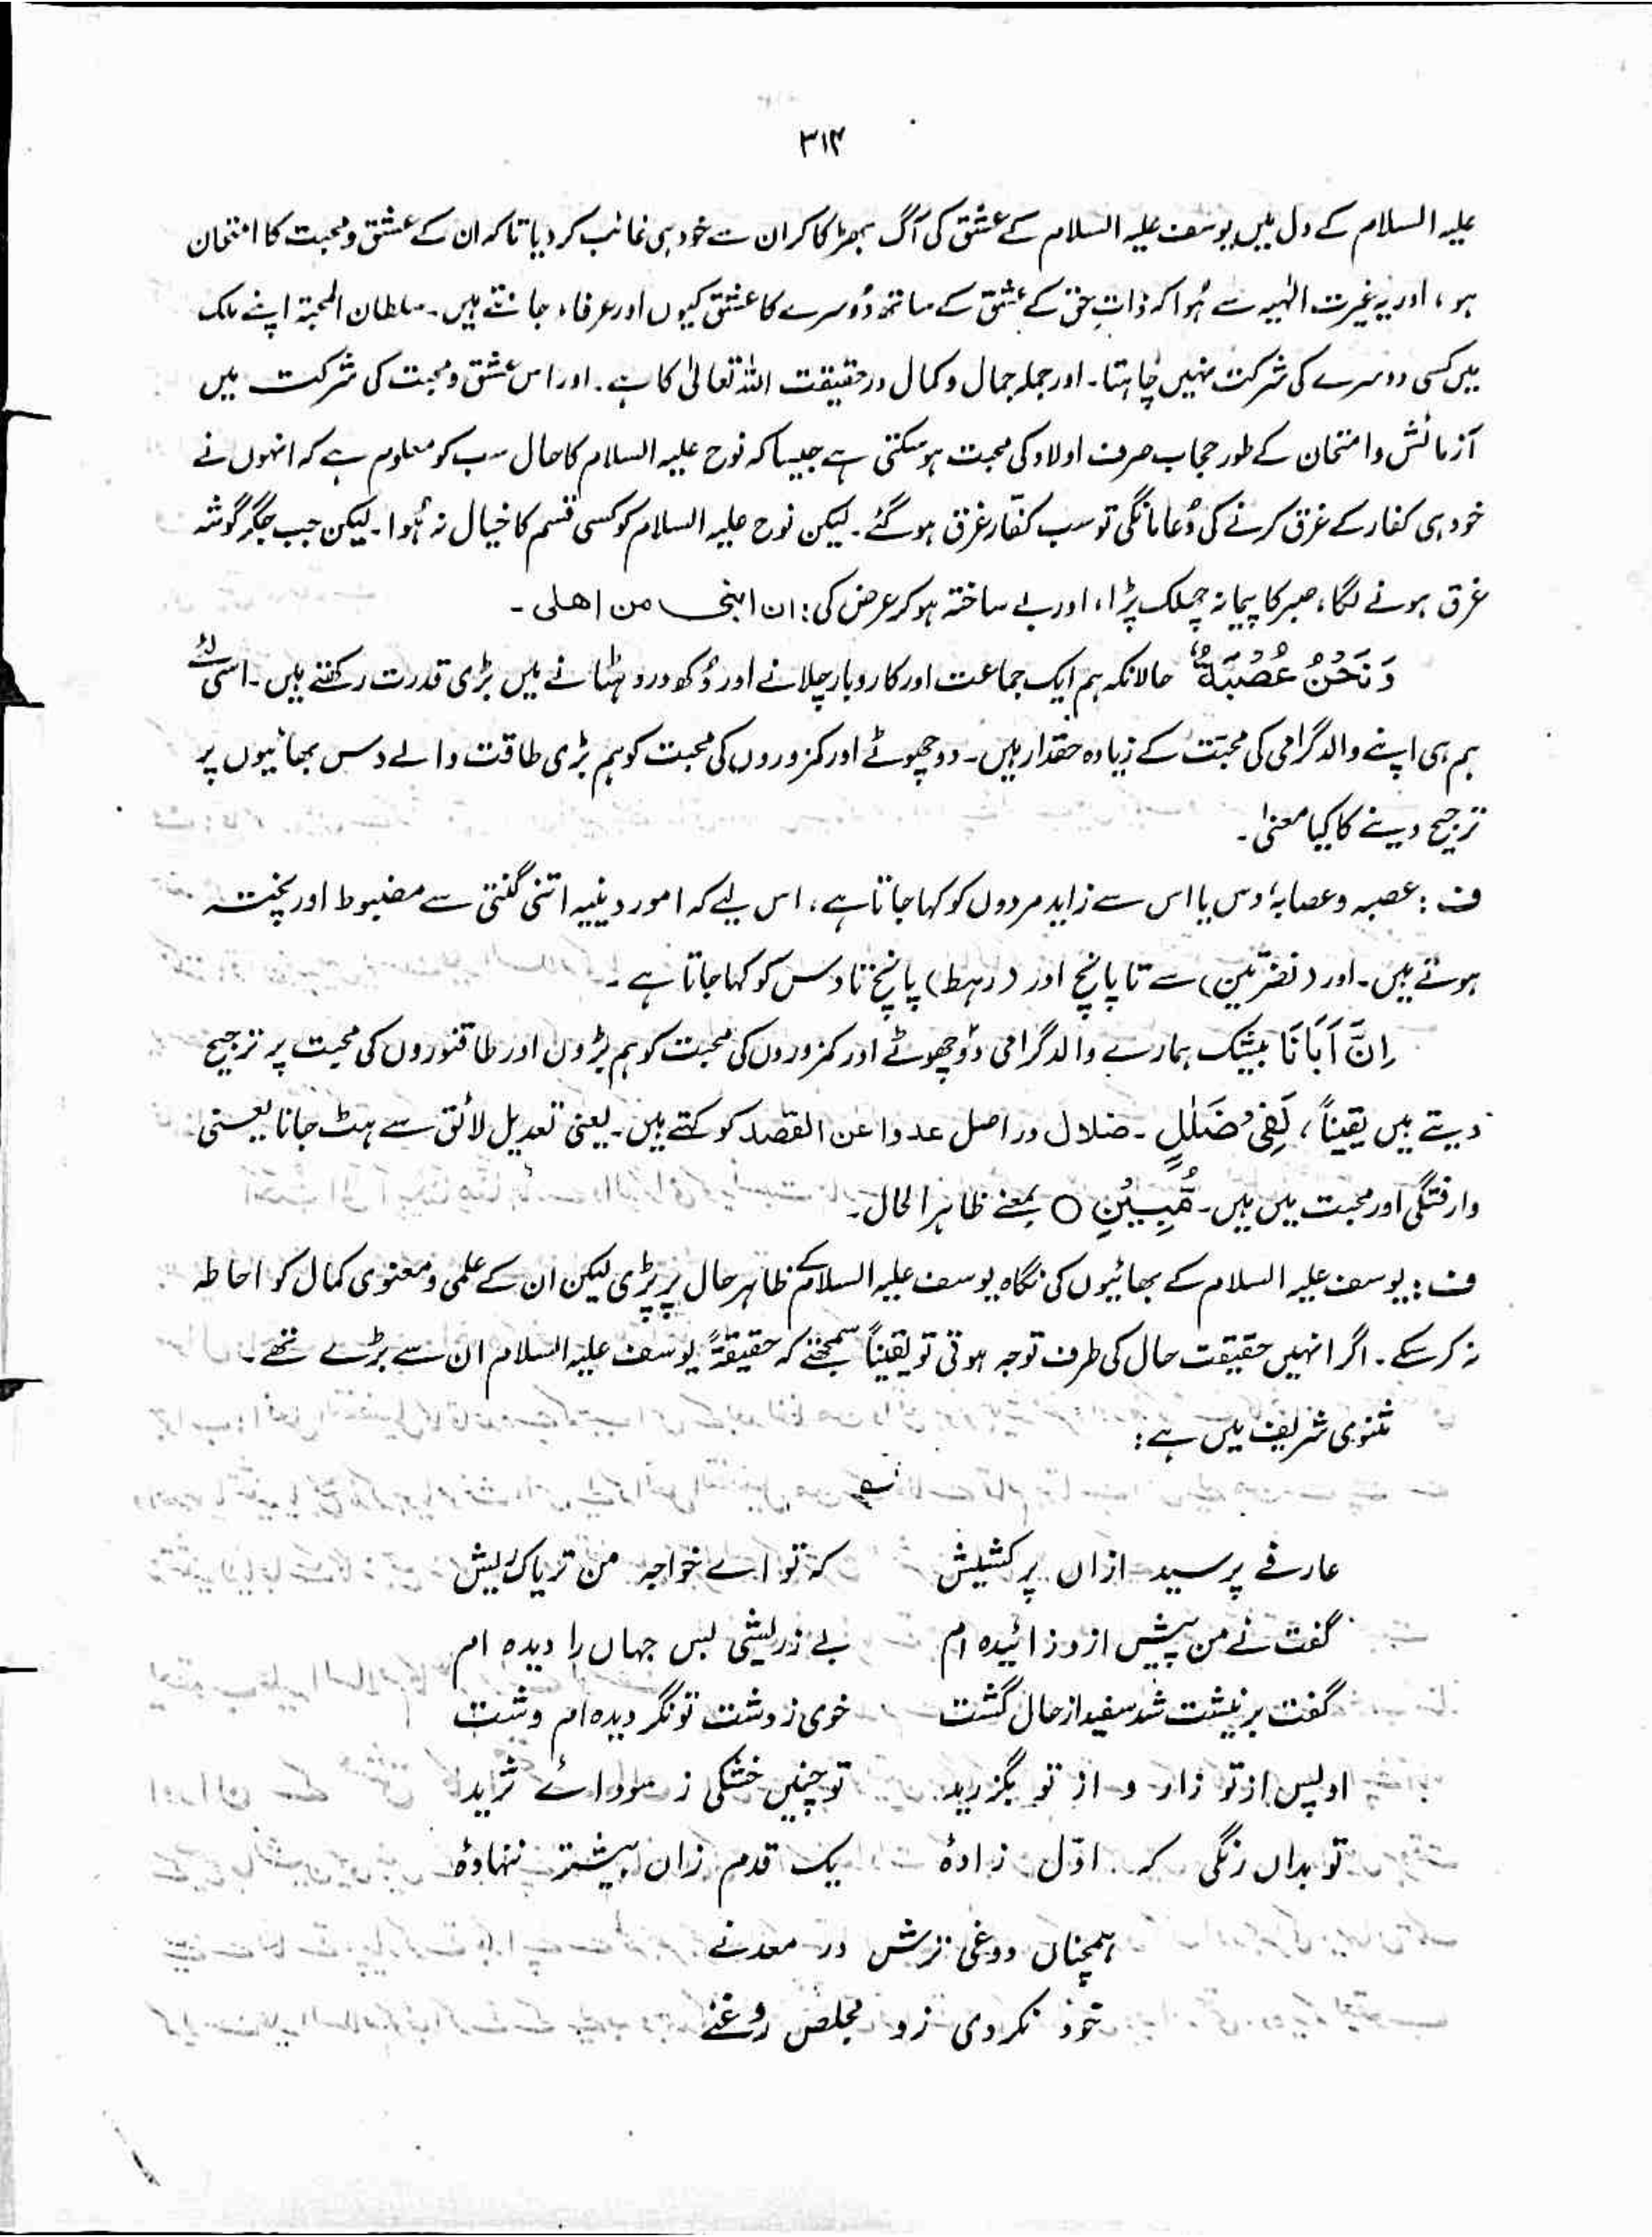 ۳۱۴
علیہ السلام کے دل میں یوسف علیہ السلام کے عشق کی آگ بھڑکا کر ان سے خود ہی غائب کر دیا تاکہ ان کے عشق و محبت کا امتحان
ہو، اور یہ غیرت الٰہیہ سے ہُوا کہ ذاتِ حق کے عشق کے ساتھ دُوسرے کا عشق کیوں اور عرفاء جانتے ہیں۔ سلطان المحبۃ اپنے ملک
میں کسی دوسرے کی شرکت نہیں چاہتا۔ اور جملہ جمال و کمال درحقیقت اللہ تعالیٰ کا ہے۔ اور اس عشق و محبت کی شرکت میں
آزمائش و امتحان کے طور حجاب صرف اولاد کی محبت ہو سکتی ہے جیسا کہ نوح علیہ السلام کا حال سب کو معلوم ہے کہ انہوں نے
خود ہی کفار کے غرق کرنے کی دُعا مانگی تو سب کفّار غرق ہو گئے۔ لیکن نوح علیہ السلام کو کسی قسم کا خیال نہ ہُوا۔ لیکن جب جگر گوشہ
غرق ہونے لگا، صبر کا پیمانہ چھلک پڑا، اور بے ساختہ ہو کر عرض کی: ان ابنی من اھلی۔
وَنَحْنُ عُصْبَۃٌ ؕ حالانکہ ہم ایک جماعت اور کاروبار چلانے اور دُکھ درد ہٹانے میں بڑی قدرت رکھتے ہیں۔ اسی لئے
ہم ہی اپنے والد گرامی کی محبّت کے زیادہ حقدار ہیں۔ دو چھوٹے اور کمزوروں کی محبت کو ہم بڑی طاقت والے دس بھائیوں پر
ترجیح دینے کا کیا معنیٰ۔
ف: عصبہ و عصابۂ دس یا اس سے زاید مردوں کو کہا جاتا ہے، اس لیے کہ امور دینیہ اتنی گنتی سے مضبوط اور پختہ
ہوتے ہیں۔ اور (نضرتین) سے تا پانچ اور (رہط) پانچ تا دس کو کہا جاتا ہے۔
اِنَّ اَبَانَا بیشک ہمارے والد گرامی دو چھوٹے اور کمزوروں کی محبت کو ہم بڑوں اور طاقتوروں کی محبت پر ترجیح
دیتے ہیں یقیناً، لَفِیْ ضَلٰلٍ۔ ضلال دراصل عدوا عن القصد کو کہتے ہیں۔ یعنی تعدیل لائق سے ہٹ جانا یعنی
وارفتگی اور محبت میں ہیں۔ مُّبِیْنٍ ○ بمعنے ظاہر الحال۔
ف: یوسف علیہ السلام کے بھائیوں کی نگاہ یوسف علیہ السلام کے ظاہر حال پر پڑی لیکن ان کے علمی و معنوی کمال کو احاطہ
نہ کر سکے۔ اگر انہیں حقیقت حال کی طرف توجہ ہوتی تو یقیناً سمجھتے کہ حقیقۃً یوسف علیہ السلام ان سے بڑے تھے۔
مثنوی شریف میں ہے:
عارفے پرسید ازاں پر کشیش کہ تو اے خواجہ من تر یاک ریش
گفت نے من پیش ازو زائیدہ ام بے ز ریشی بس جہاں را دیدہ ام
گفت بر نیشت شد سفید از حال گشت خوی زدشت تو نگر دیدہ ام وشت
او پس از تو زاد و از تو بگزرید تو چنیں خشکی ز سوداۓ ثرید
تو بداں رنگی کہ اوّل زادۂ یک قدم زاں پیشتر ننہادۂ
ہمچناں دوغی ترش در معدنے
خود نکردی زو مخلص روغنے